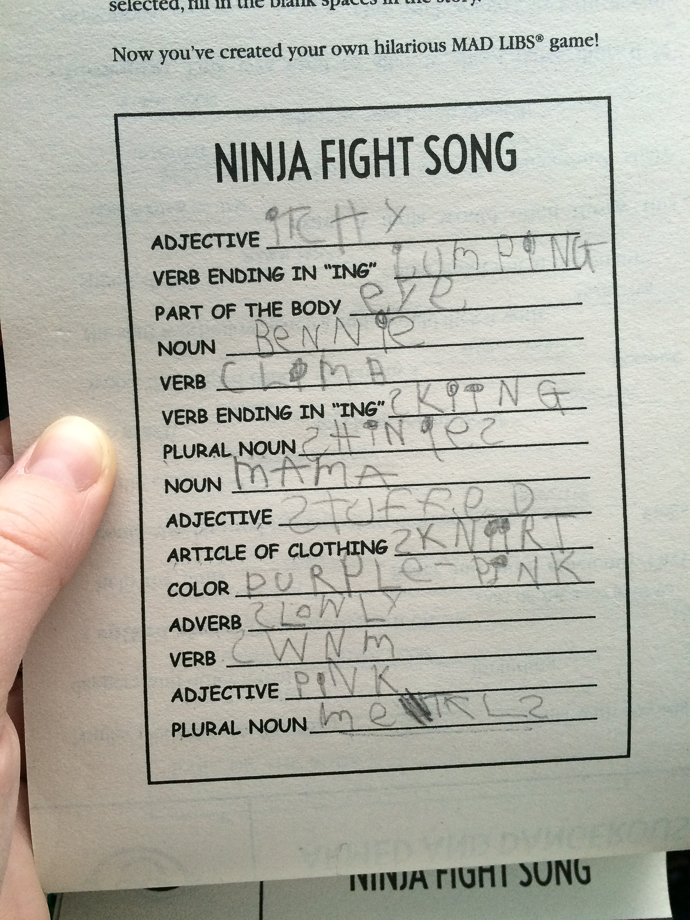 selected, fill in the blank spaces in the story.
Now you've created your own hilarious MAD LIBS® game!
NINJA FIGHT SONG
ADJECTIVE ITCHY
VERB ENDING IN "ING" LUMPING
PART OF THE BODY eye
NOUN BeNNIe
VERB CLIMB
VERB ENDING IN "ING" SKIING
PLURAL NOUN
NOUN MAMA
ADJECTIVE STUFFED
ARTICLE OF CLOTHING
COLOR PURPLe-PINK
ADVERB SLOWLY
VERB SWNM
ADJECTIVE PINK
PLURAL NOUN
ARMED AND DANGEROUS
NINJA FIGHT SONG